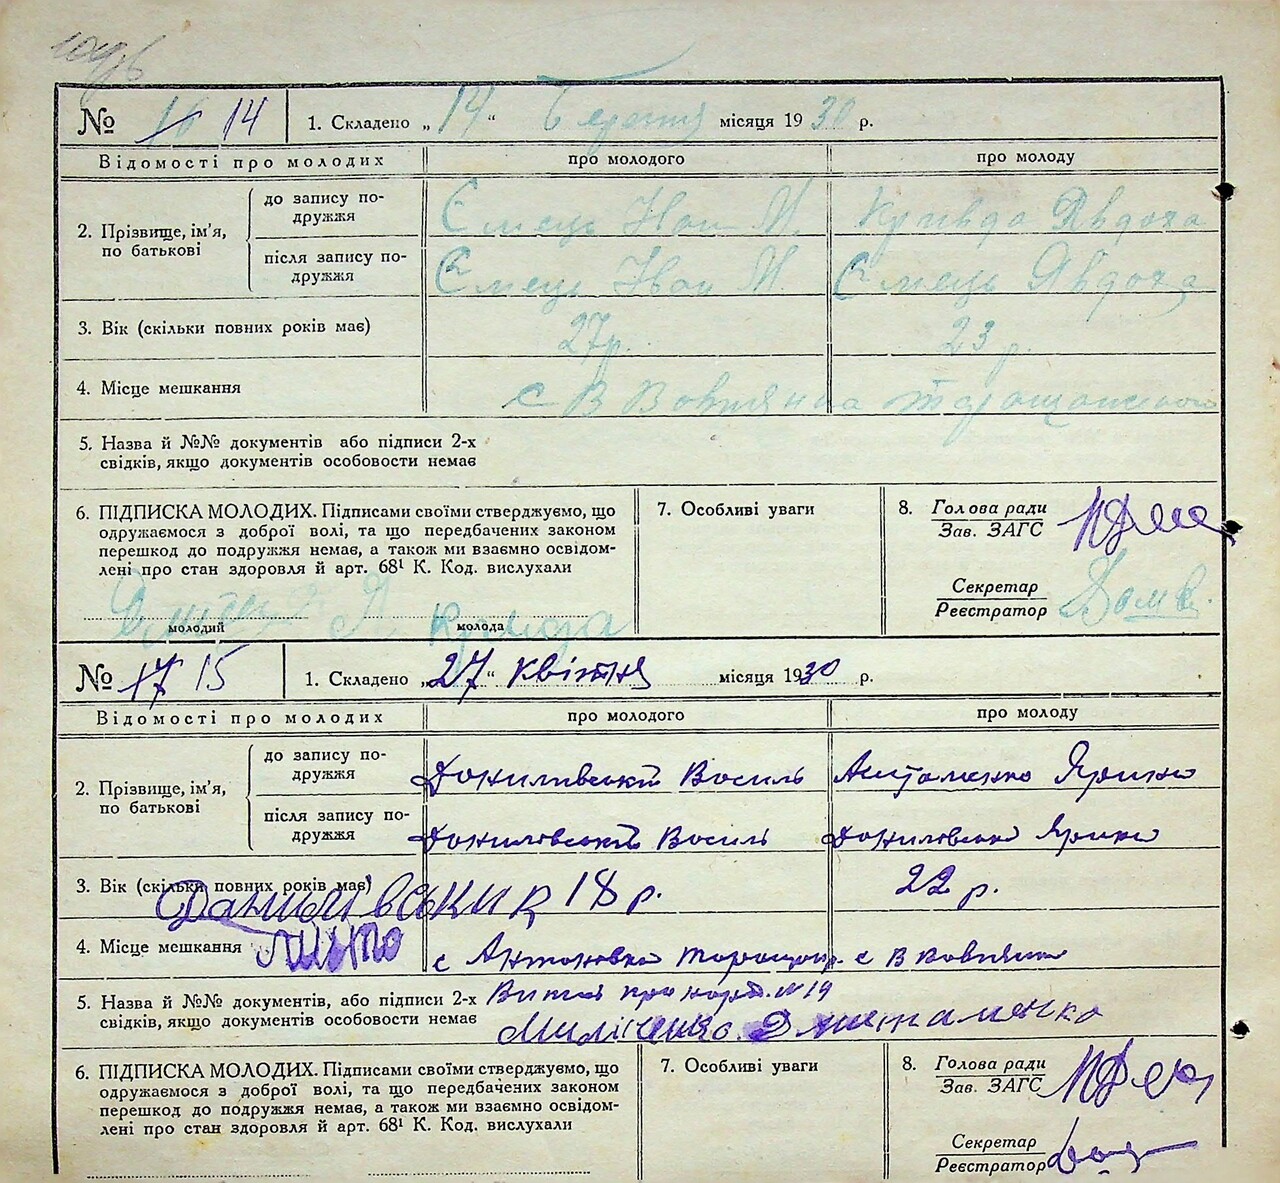 № 16 14 1. Складено „14“ Березня місяця 1930 р.
Відомості про молодих про молодого про молоду
2. Прізвище, ім'я, по батькові
до запису подружжя Ємець Іван М. Кривда Явдоха
після запису подружжя Ємець Іван М. Ємець Явдоха
3. Вік (скільки повних років має) 27р. 23 р.
4. Місце мешкання с В Вовнянка таращанського
5. Назва й №№ документів або підписи 2-х
свідків, якщо документів особовости немає
6. ПІДПИСКА МОЛОДИХ. Підписами своїми стверджуємо, що
одружаємося з доброї волі, та що передбачених законом
перешкод до подружжя немає, а також ми взаємно освідом-
лені про стан здоров'я й арт. 68¹ К. Код. вислухали
7. Особливі уваги
8. Голова ради
Зав. ЗАГС
Секретар
Реєстратор
молодий молода
№ 17 15 1. Складено „27“ квітня місяця 1930 р.
Відомості про молодих про молодого про молоду
2. Прізвище, ім'я, по батькові
до запису подружжя Данилівський Василь Ярина
після запису подружжя Данилівський Василь Данилівська Ярина
3. Вік (скільки повних років має) 18 р. 22 р.
Данилівський
4. Місце мешкання с Антонівка таращан. с В Вовнянка
5. Назва й №№ документів, або підписи 2-х
свідків, якщо документів особовости немає
№ 19
6. ПІДПИСКА МОЛОДИХ. Підписами своїми стверджуємо, що
одружаємося з доброї волі, та що передбачених законом
перешкод до подружжя немає, а також ми взаємно освідом-
лені про стан здоров'я й арт. 68¹ К. Код. вислухали
7. Особливі уваги
8. Голова ради
Зав. ЗАГС
Секретар
Реєстратор